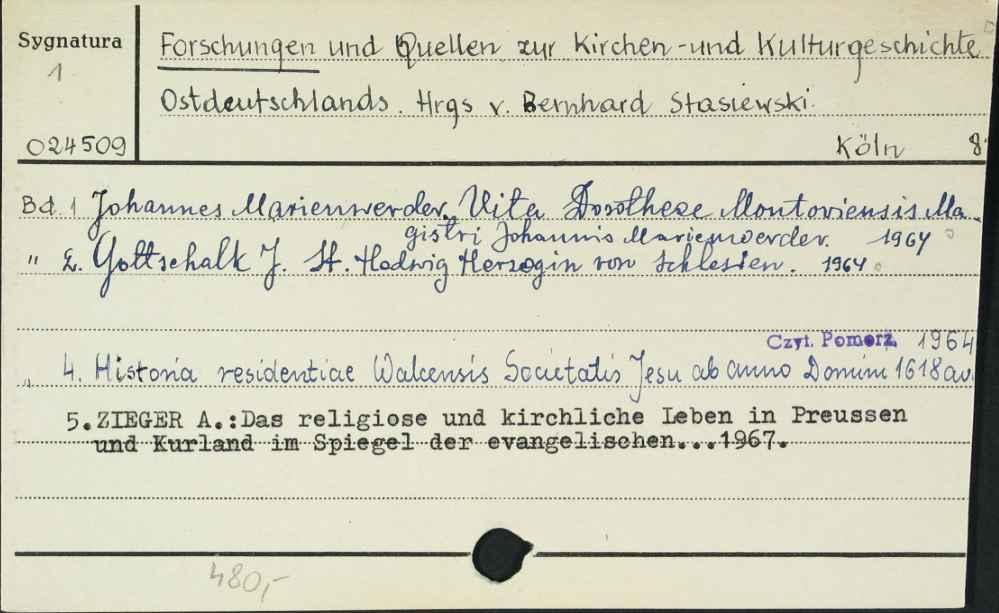 Sygnatura
1
024509
Forschungen und Quellen zur Kirchen-und Kulturgeschichte
Ostdeutschlands. Hrgs v. Bernhard Stasiewski.
Köln 8°
Bd. 1 Johannes Marienwerder. Vita Dorotheae Montoviensis Ma-
gistri Johannis Marienwerder. 1964
" 2. Gottschalk J. St. Hedwig Herzogin von Schlesien. 1964
Czyt. Pomorz. 1964
" 4. Historia residentiae Walcensis Societatis Jesu ab anno Domini 1618 av.
5. ZIEGER A.:Das religiose und kirchliche Leben in Preussen
und Kurland im Spiegel der evangelischen...1967.
480,-